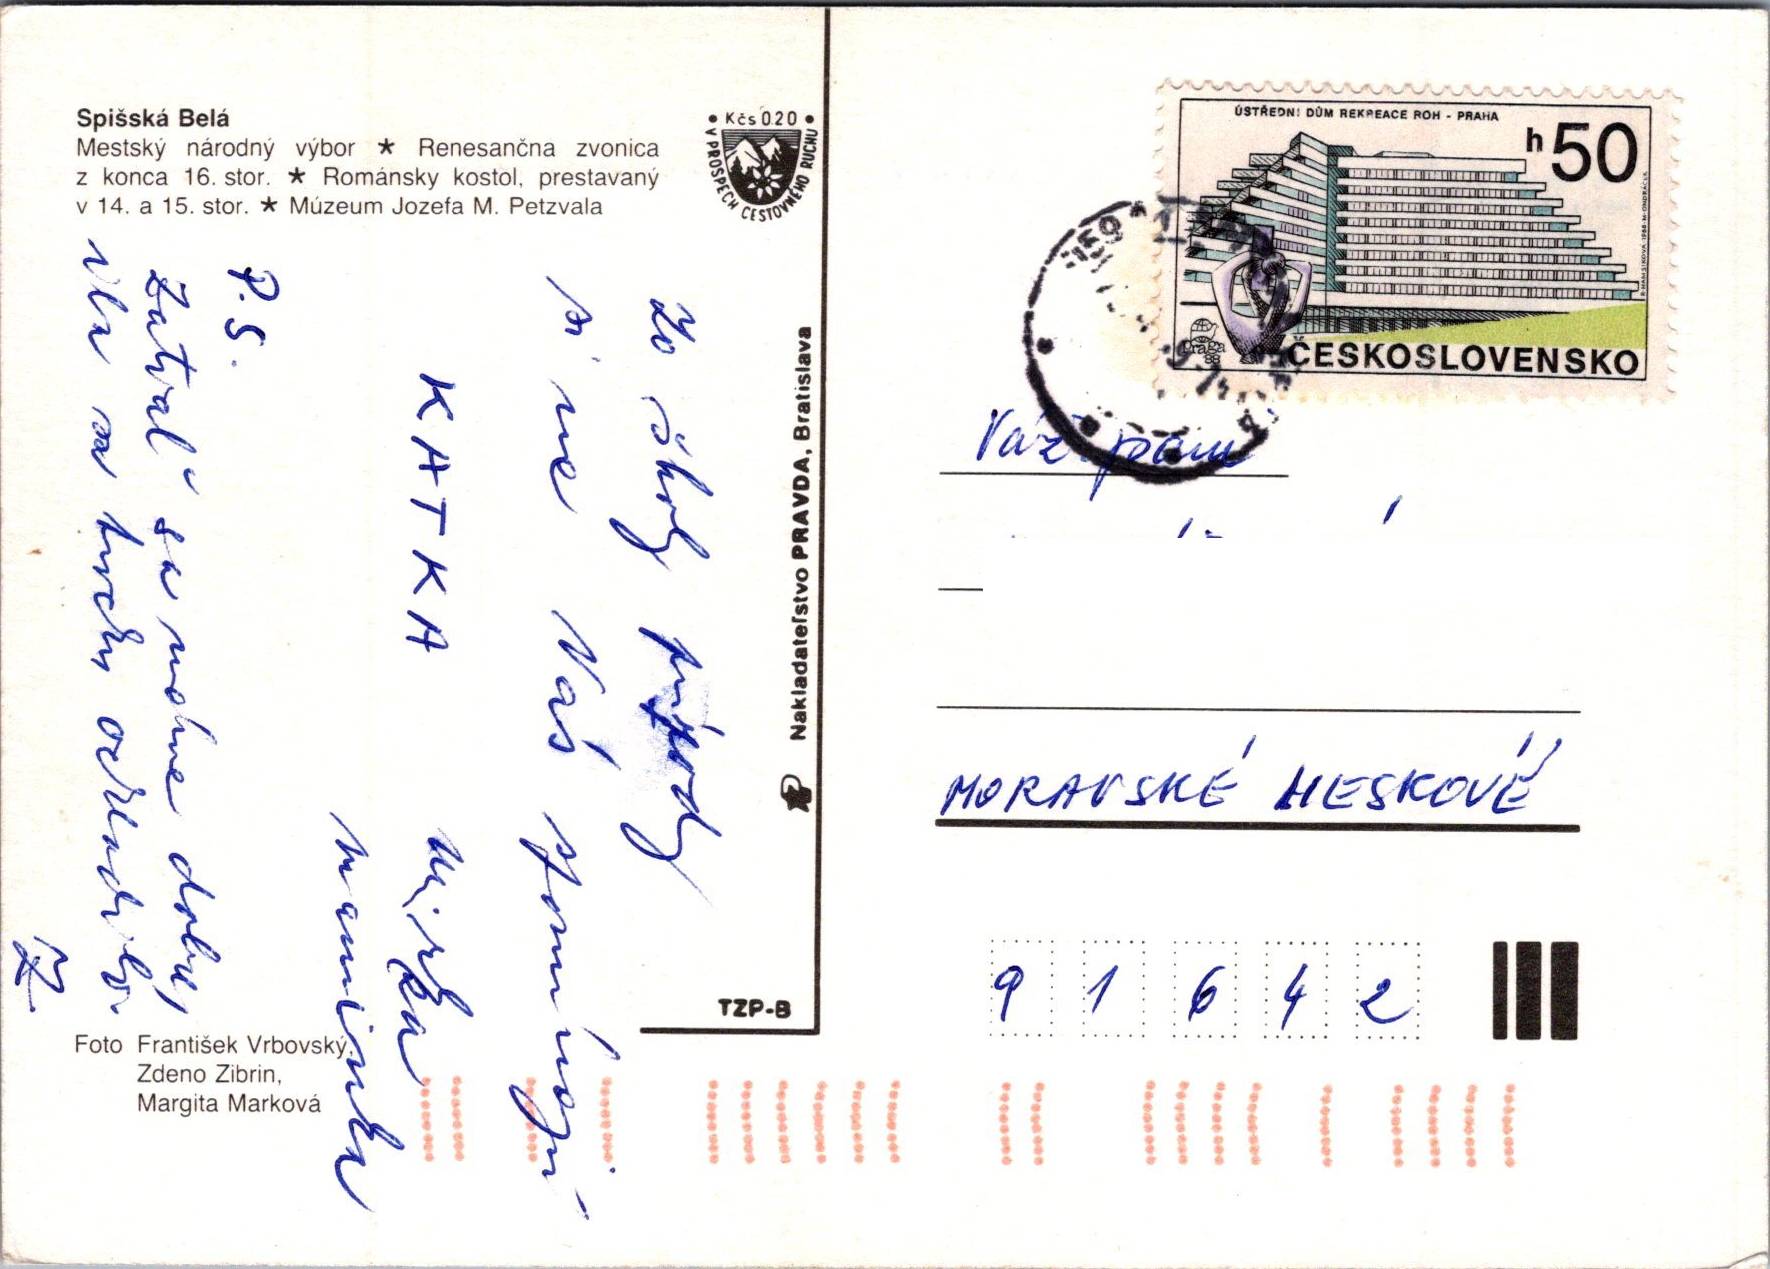 Spišská Belá
Mestský národný výbor ★ Renesančna zvonica
z konca 16. stor. ★ Románsky kostol, prestavaný
v 14. a 15. stor. ★ Múzeum Jozefa M. Petzvala
• Kčs 0.20 •
V PROSPECH CESTOVNÉHO RUCHU
Zo školy prírody
si na Vás spomínajú
KATKA Mirka
maminka
P.S.
Zatiaľ sa nohe
vše sa
Ž
Nakladateľstvo PRAVDA, Bratislava
TZP-B
Foto František Vrbovský,
Zdeno Zibrin,
Margita Marková
ÚSTŘEDNÍ DŮM REKREACE ROH - PRAHA
h 50
praga
88
ČESKOSLOVENSKO
Váž. pani
MORAVSKÉ LIESKOVÉ
9 1 6 4 2